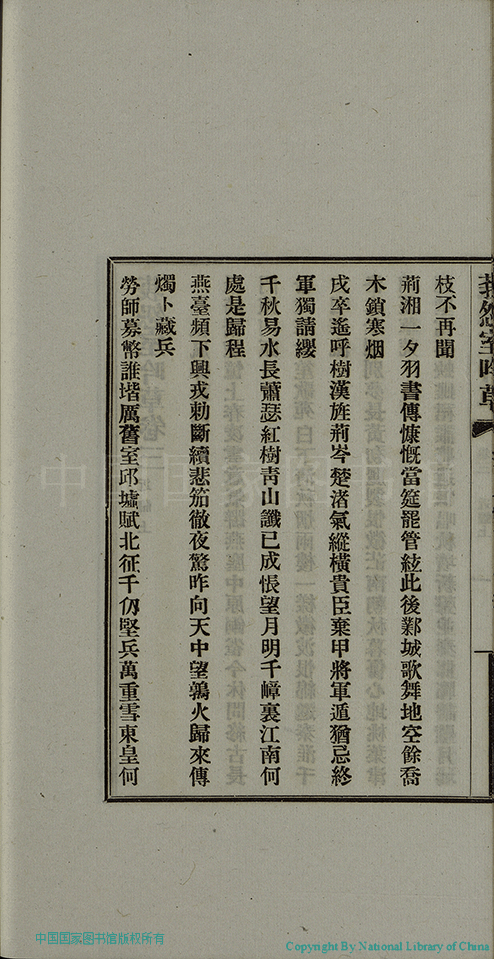 枝不再聞
荊湘一夕羽書傳慷慨當筵罷管絃此後鄴城歌舞地空餘喬
木鎖寒烟
戍卒遙呼樹漢旌荊岑楚渚氣縱橫貴臣棄甲將軍遁猶忌終
軍獨請纓
千秋易水長蕭瑟紅樹靑山讖已成悵望月明千嶂裏江南何
處是歸程
燕臺頻下興戎勅斷續悲笳徹夜驚昨向天中望鶉火歸來傳
燭卜藏兵
勞師募幣誰堦厲舊室邱墟賦北征千仞堅兵萬重雪東皇何
中国国家图书馆版权所有
Copyright By National Library of China